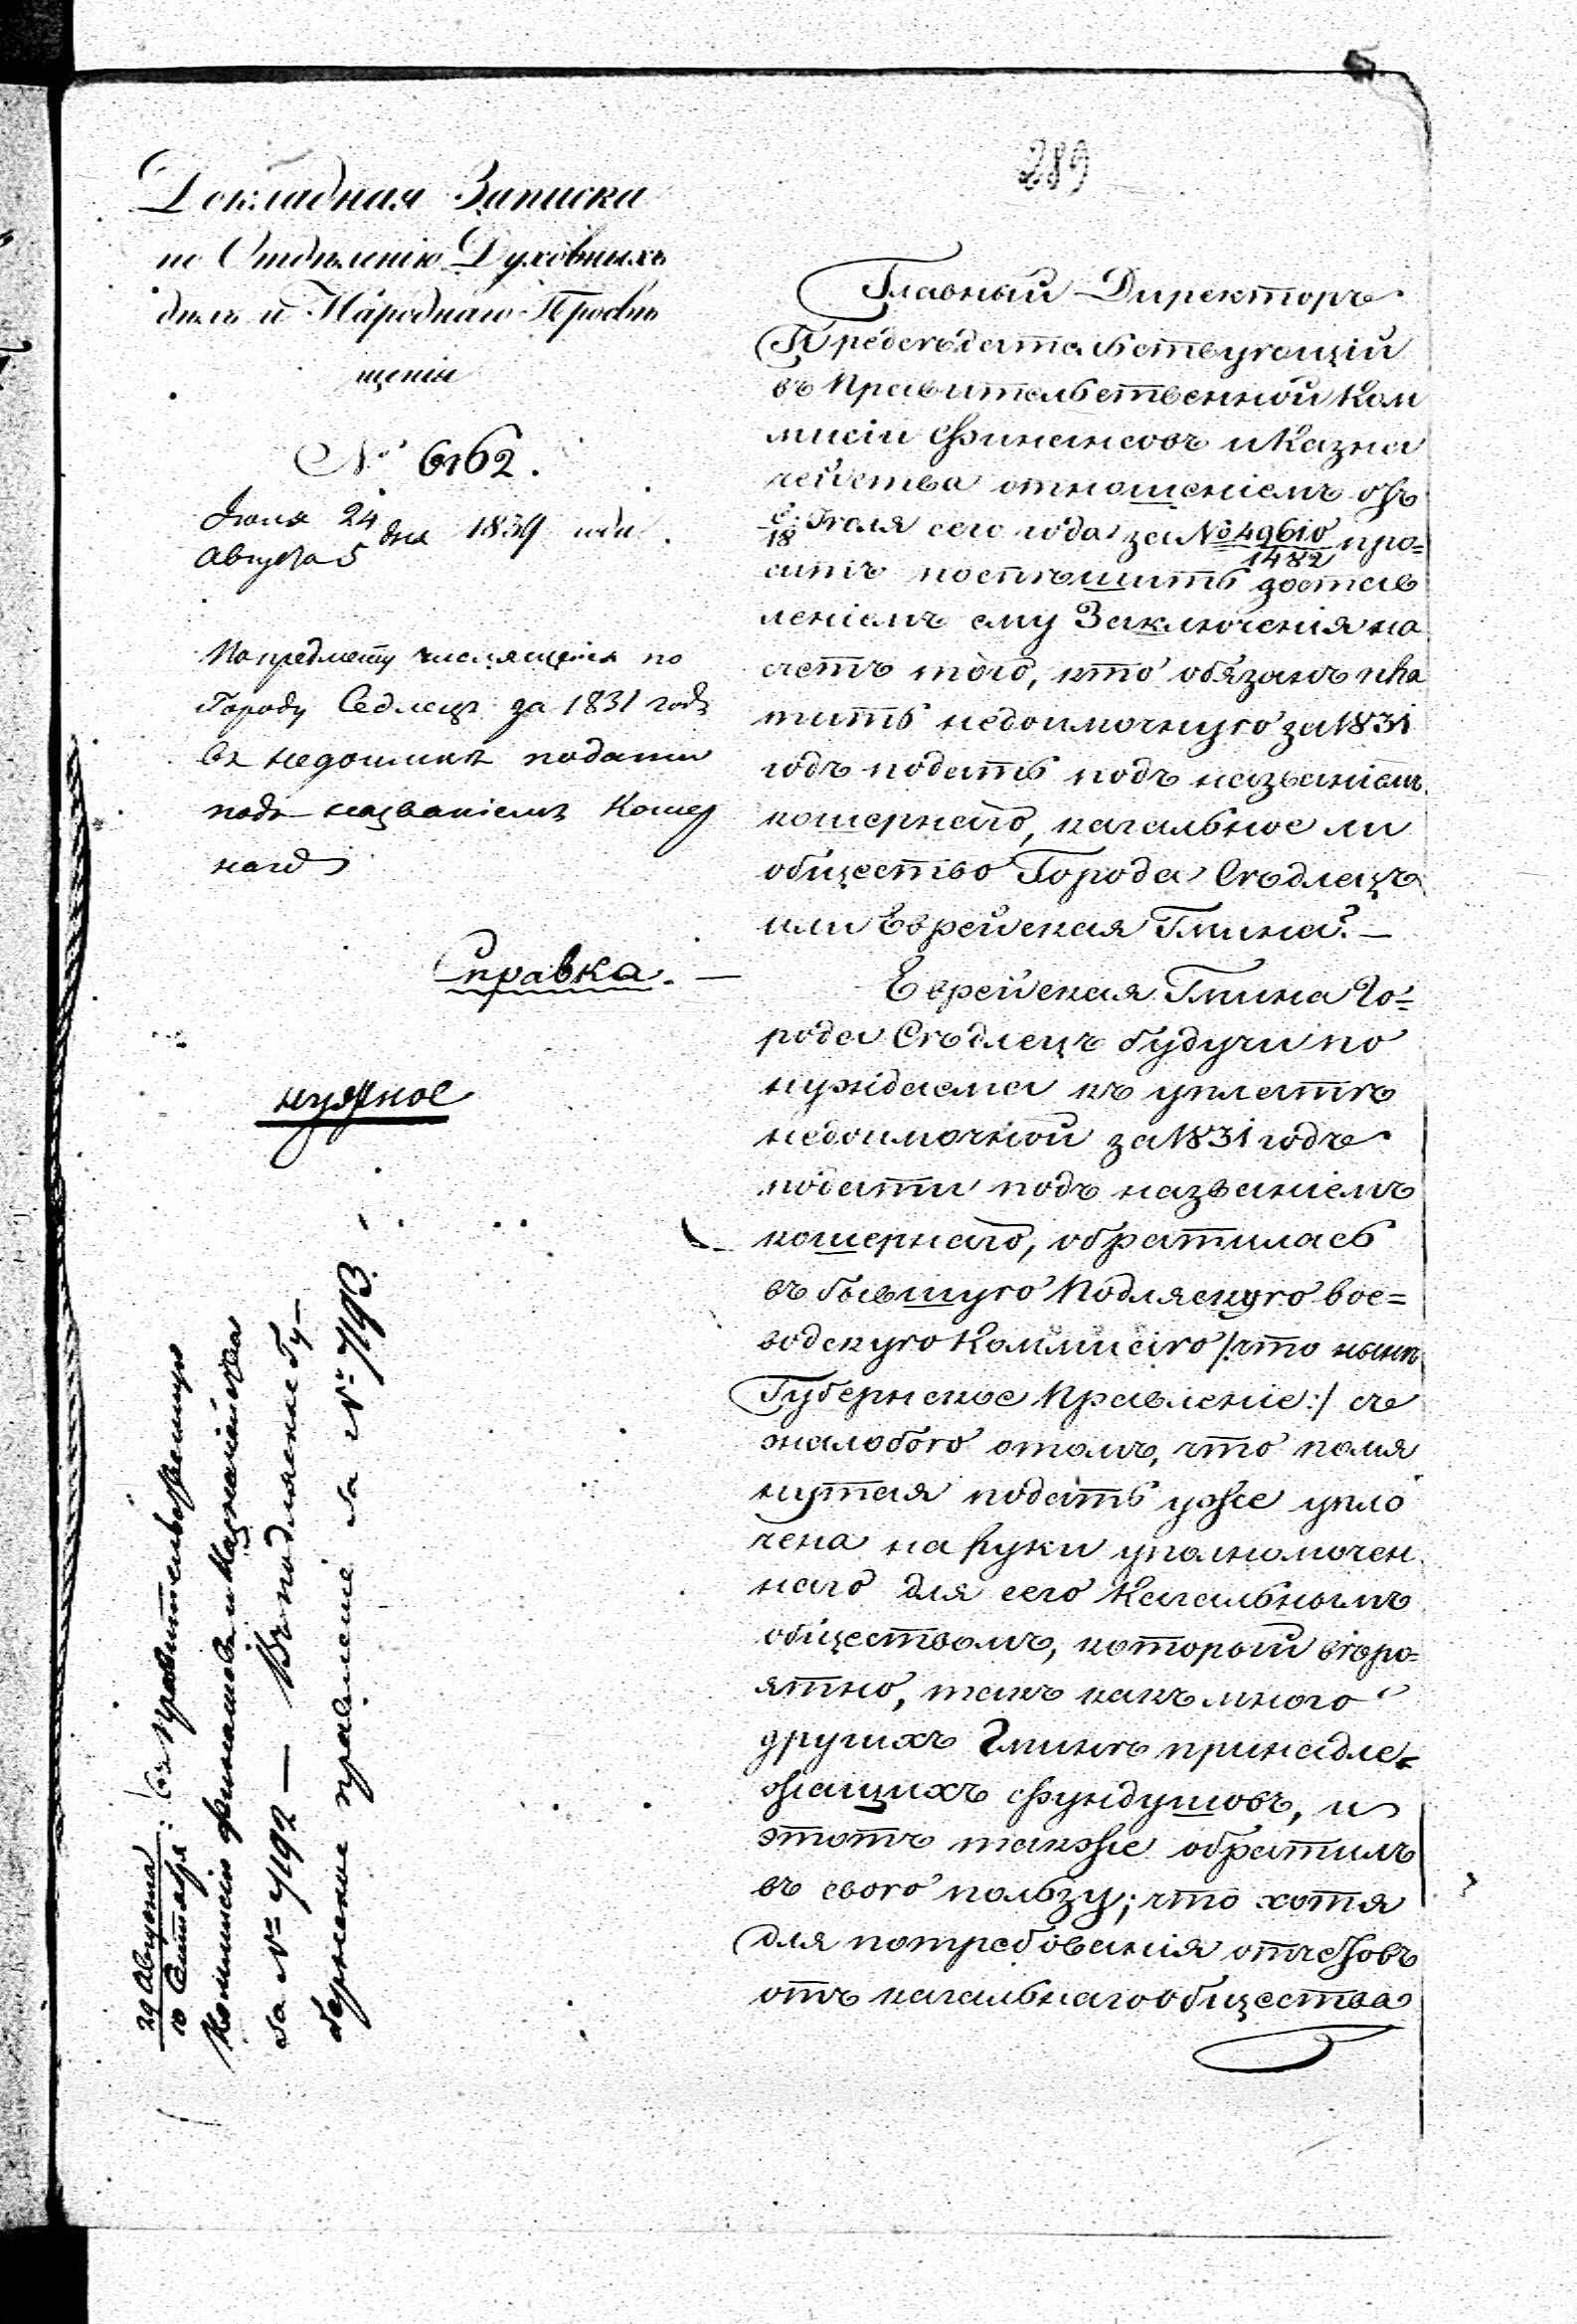 289
Докладная Записка
по Отдѣленію Духовныхъ
дѣлъ и Народнаго Просвѣ
щенія
№ 6162.
Іюля 24
Августа 5 дня 1839 года.
По предмету числящейся по
Городу Седлецъ за 1831 годъ
въ недоимкѣ подати
подъ названіемъ Кошер
наго
Справка. —
нужное
29 Августа
10 Сентября : въ Правительственную
Коммисію Финансовъ и Казначейства
за № 7192 — Въ Подляское Гу-
бернское правленіе за № 7193.
Главный Директоръ
Предсѣдательствующій
въ Правительственной Ком
мисіи Финансовъ и Казна
чейства отношеніемъ отъ
6/18 Іюля сего года за № 49610/1482 про=
ситъ поспѣшить достав
леніемъ ему Заключенія на
счетъ того, кто обязанъ пла
тить недоимочную за 1831
годъ подать подъ названіемъ
кошернаго, кагальное ли
общество Города Сѣдлецъ
или Еврейская Гмина? —
Еврейская Гмина Го=
рода Сѣдлецъ будучи по
нуждаема къ уплатѣ
недоимочной за 1831 годъ
подати подъ названіемъ
кошернаго, обратилась
въ бывшую Подляскую вое=
водскую Коммисію /:что нынѣ
Губернское Правленіе:/ съ
жалобою о томъ, что помя
нутая подать уже упло
чена на руки уполномочен
наго для сего Кагальнымъ
обществомъ, который вѣро=
ятно, такъ какъ много
другихъ Гминѣ принадле=
жащихъ фундушовъ, и
этотъ также обратилъ
въ свою пользу; что хотя
для потребованія отчетовъ
отъ кагальнаго общества